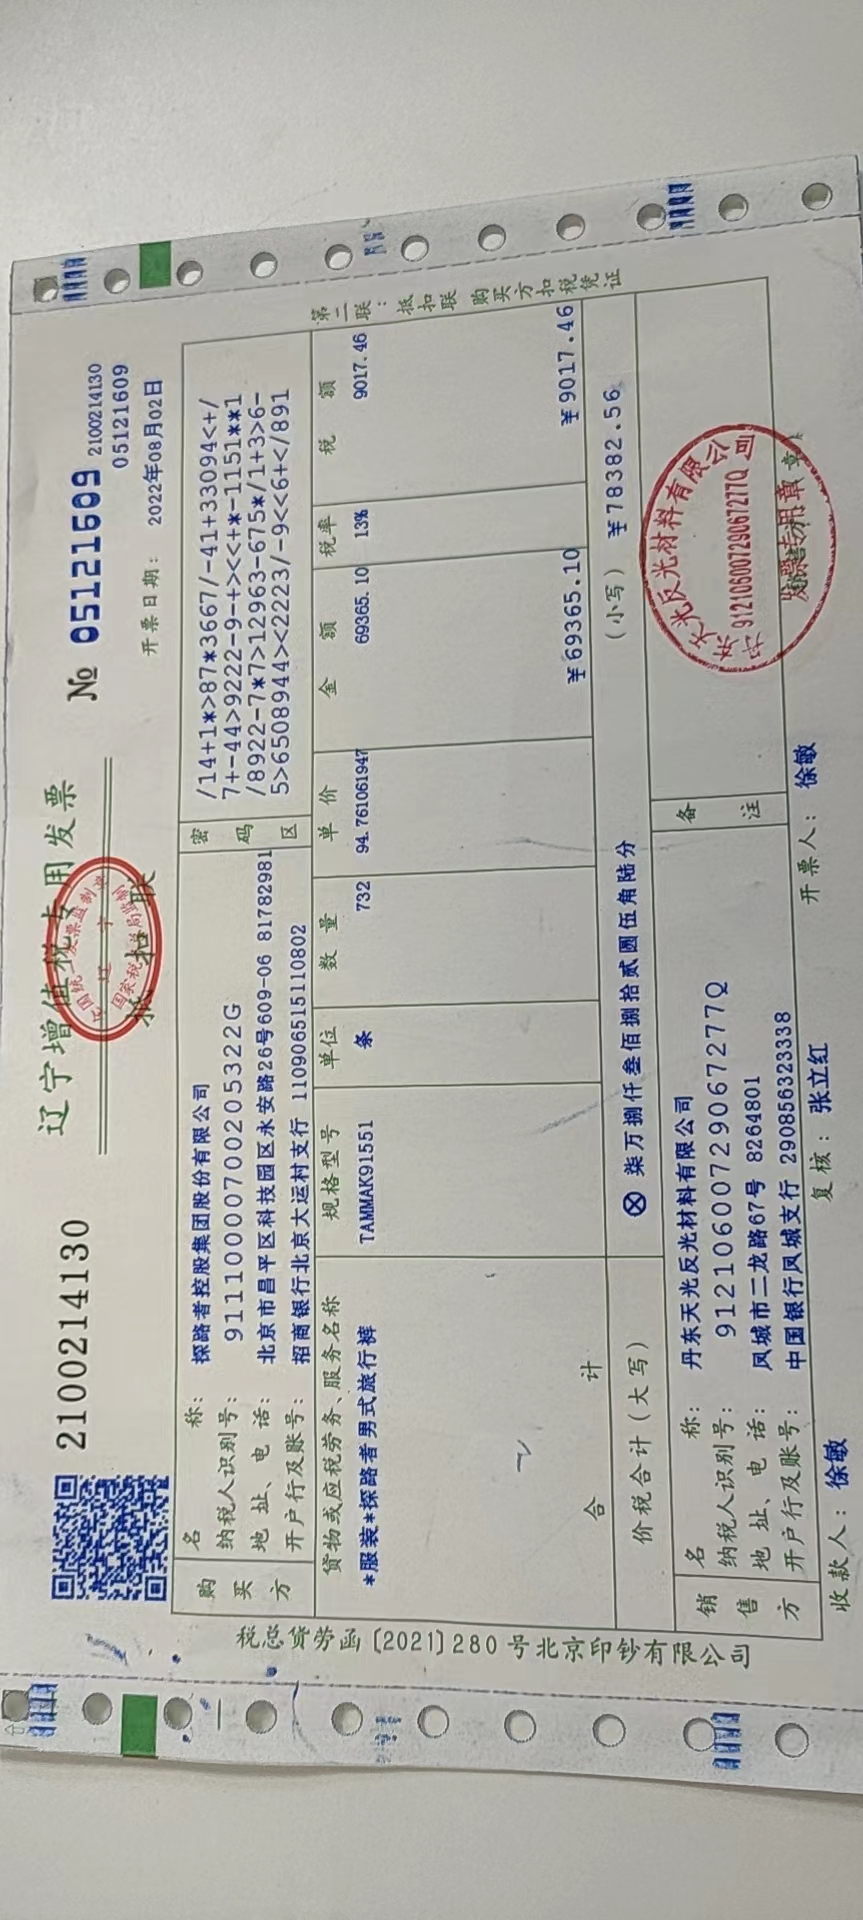 2100214130
辽宁增值税专用发票
抵扣联
№ 05121609
2100214130
05121609
开票日期： 2022年08月02日
购买方
名 称：探路者控股集团股份有限公司
纳税人识别号：91110000700205322G
地址、电话：北京市昌平区科技园区永安路26号609-06 81782981
开户行及账号：招商银行北京大运村支行 110906515110802
密码区
/14+1*>87*3667/-41+33094<+/
7+-44>9222-9-+><<+*-1151**1
/8922-7*7>12963-675*/1+3>6-
5>6508944><2223/-9<<6+</891
货物或应税劳务、服务名称 规格型号 单位 数量 单价 金额 税率 税额
*服装*探路者男式旅行裤 TAMMAK91551 条 732 94.761061947 69365.10 13% 9017.46
合计 ¥69365.10 ¥9017.46
价税合计（大写） ⊗柒万捌仟叁佰捌拾贰圆伍角陆分 （小写） ¥78382.56
销售方
名 称：丹东天光反光材料有限公司
纳税人识别号：91210600729067277Q
地址、电话：凤城市二龙路67号 8264801
开户行及账号：中国银行凤城支行 290856323338
备注
收款人：徐敏 复核：张立红 开票人：徐敏
天光反光材料有限公司
91210600729067277Q
发票专用章
税总货劳函〔2021〕280号北京印钞有限公司
第二联：抵扣联 购买方扣税凭证